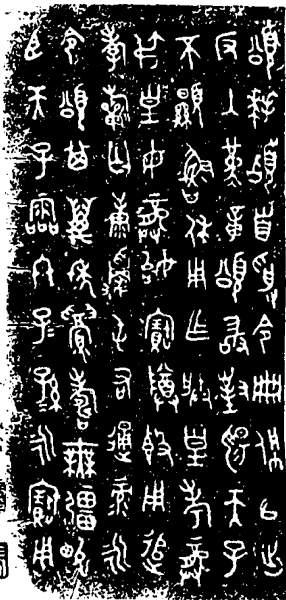 頌拜𩒨首受令冊佩㠯出
反入堇章頌敢對揚天子
不顯魯休用乍朕皇考龏
弔皇母龏始寶尊𣪘用追
孝𣄨匃康𠖷屯右通彔永
令頌其萬年眉壽無疆畯
臣天子霝冬子孫永寶用